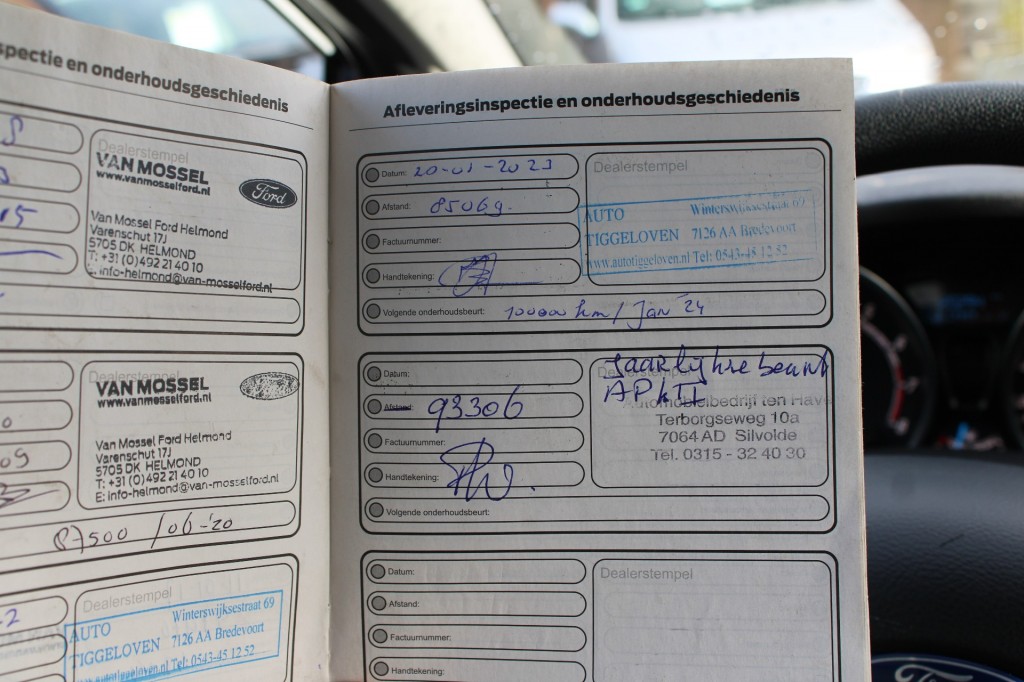 spectie en onderhoudsgeschiedenis
Dealerstempel
VAN MOSSEL
www.vanmosselford.nl
Ford
Van Mossel Ford Helmond
Varenschut 17J
5705 DK HELMOND
T: +31 (0)492 21 40 10
E: info-helmond@van-mosselford.nl
15
Dealerstempel
VAN MOSSEL
www.vanmosselford.nl
Van Mossel Ford Helmond
Varenschut 17J
5705 DK HELMOND
T: +31 (0)492 21 40 10
E: info-helmond@van-mosselford.nl
09
87500 /06-'20
Dealerstempel
AUTO Winterswijksestraat 69
TIGGELOVEN 7126 AA Bredevoort
www.autotiggeloven.nl Tel: 0543-45 12 52
Afleveringsinspectie en onderhoudsgeschiedenis
Datum: 20-01-2023
Afstand: 85069.
Factuurnummer:
Handtekening:
Volgende onderhoudsbeurt: 10000 km / Jan '24
Dealerstempel
AUTO Winterswijksestraat 69
TIGGELOVEN 7126 AA Bredevoort
www.autotiggeloven.nl Tel: 0543-45 12 52
Datum:
Afstand: 93306
Factuurnummer:
Handtekening:
Volgende onderhoudsbeurt:
Dealerstempel
Jaarlijkse beurt
APK
Automobielbedrijf ten Have
Terborgseweg 10a
7064 AD Silvolde
Tel. 0315 - 32 40 30
Datum:
Afstand:
Factuurnummer:
Handtekening:
Dealerstempel
Ford